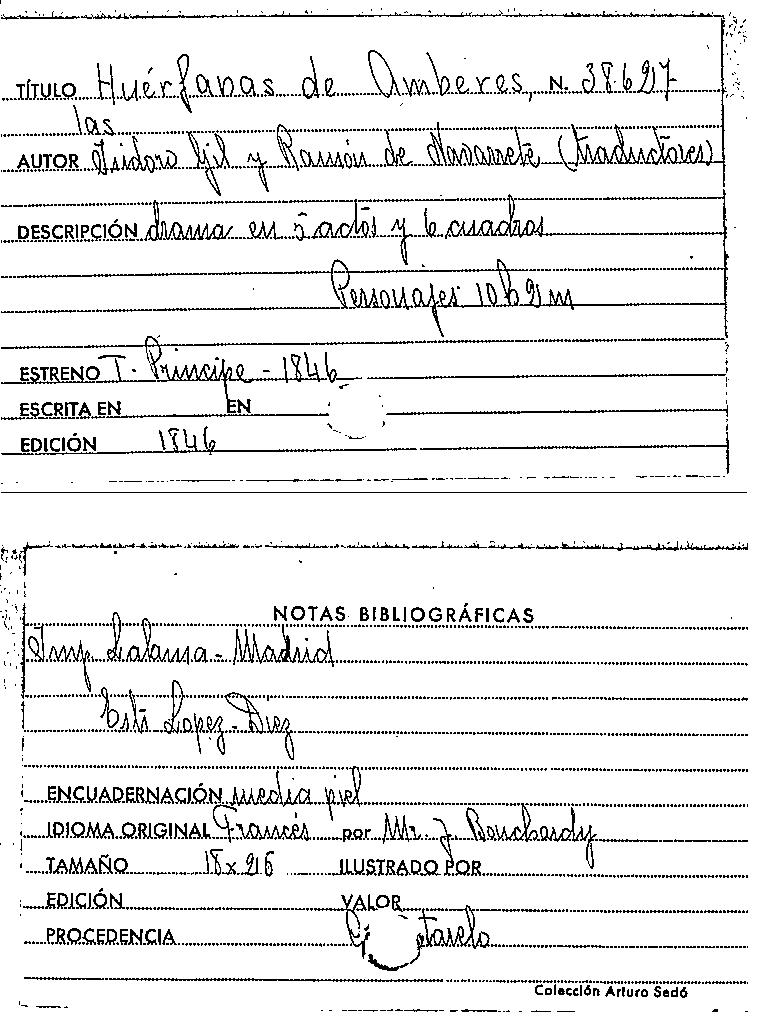 TÍTULO Huérfanas de Amberes, N. 38627
las
AUTOR Isidoro Gil y Ramón de Navarrete (traductores)
DESCRIPCIÓN drama en 5 actos y 6 cuadros
Personajes 10 h 2 m
ESTRENO T. Principe - 1846
ESCRITA EN EN
EDICIÓN 1846
NOTAS BIBLIOGRÁFICAS
Imp. Lalama - Madrid
Lopez - Diez
ENCUADERNACIÓN media piel
IDIOMA ORIGINAL Francés por Mr. J. Bouchardy
TAMAÑO 18 x 26 ILUSTRADO POR
EDICIÓN VALOR
PROCEDENCIA
Colección Arturo Sedó